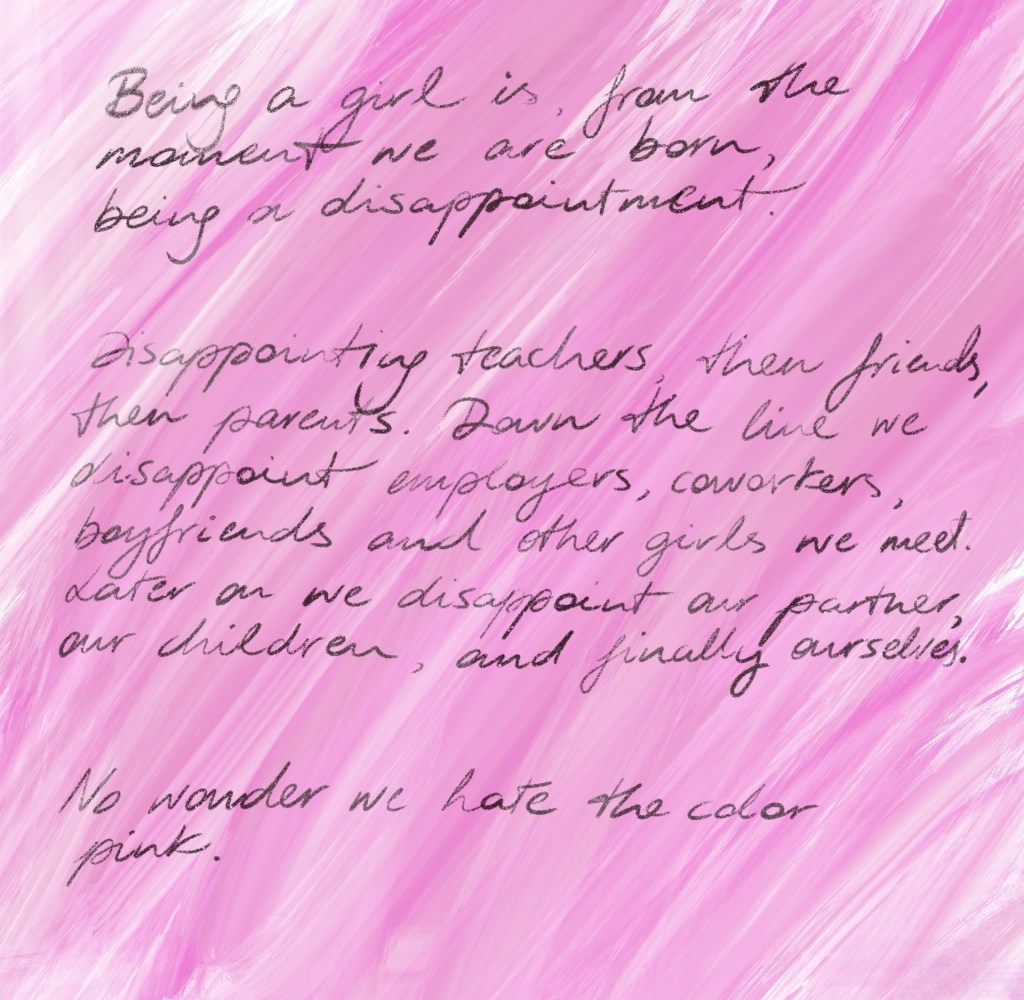 Being a girl is, from the
moment we are born,
being a disappointment.
Disappointing teachers, then friends,
then parents. Down the line we
disappoint employers, coworkers,
boyfriends and other girls we meet.
Later on we disappoint our partner,
our children, and finally ourselves.
No wonder we hate the color
pink.